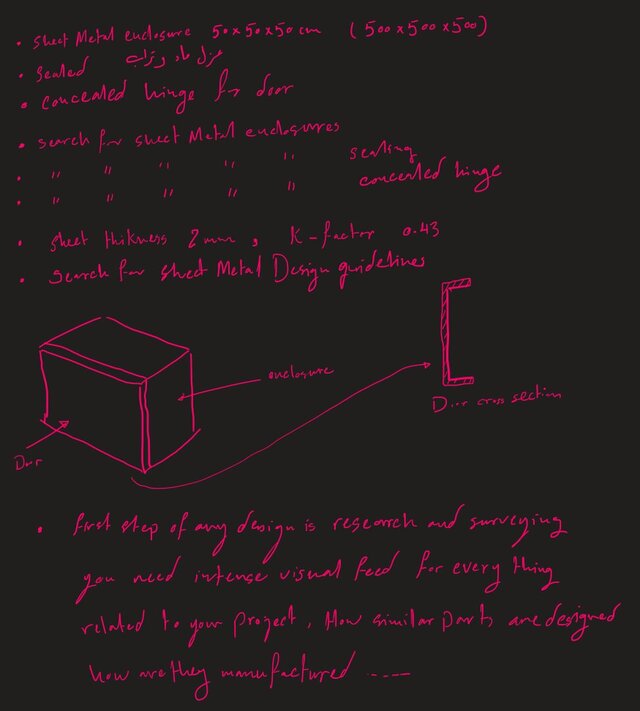 • sheet Metal enclosure 50x50x50 cm (500x500x500)
• Sealed عزل ماء و تراب
• concealed hinge for door
• search for sheet Metal enclosures
• " " " " " sealing
• " " " " " concealed hinge
• sheet thikness 2 mm , K-factor 0.43
• search for sheet Metal Design guidelines
enclosure
Door cross section
Door
• first step of any design is research and surveying
you need intense visual feed for every thing
related to your project, How similar parts are designed
how are they manufactured .....